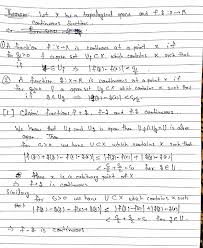 Theorem: Let X be a topological space and f, g: X→R
continuous function
① A function f: X→R is continuous at a point x if
for ε>0 ∃ open set U_f ⊂ X which contains x such that
⇒ |f(y) - f(x)| < ε/2
② A function g: X→R is continuous at a point x if
for ε>0 ∃ a open set U_g ⊂ X which contains x such that
y ∈ U_g ⇒ |g(y) - g(x)| < ε/2
[1] Claim: f+g, f-g and f.g continuous
We know that U_f and U_g is open then U_f ∩ U_g = U is also
open. Then
for ε>0 we have U ⊂ X which contains x such that
|f(y)+g(y) - f(x)-g(x)| ≤ |f(y)-f(x)| + |g(y)-g(x)|
< ε/2 + ε/2 = ε for y ∈ U
x is a arbitrary point of X
⇒ f+g is continuous
Similarly
for ε>0 we have U ⊂ X which contains x such
that |f(y)-g(y) - f(x)+g(x)| ≤ |f(y)-f(x)| + |g(y)-g(x)|
< ε/2 + ε/2 = ε for y ∈ U
⇒ f-g is continuous